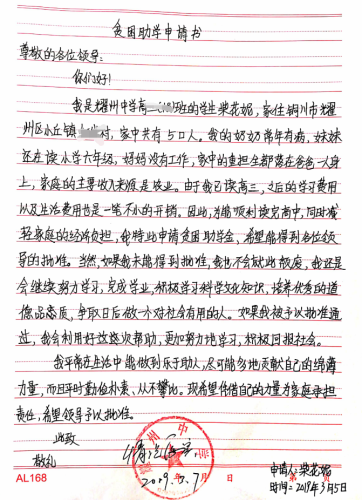 贫困助学申请书
尊敬的各位领导:
你们好!
我是耀州中学高班的学生梁花妮,家住铜川市耀
州区小丘镇村,家中共有5口人。我的奶奶常年有病,妹妹
还在读小学六年级,妈妈没有工作,家中的重担全都落在爸爸一人身
上,家庭的主要收入来源是农业。由于我已读高三,之后的学习费用
以及生活费用也是一笔不小的开销。因此,为能顺利读完高中,同时减
轻家庭的经济负担,我特此申请贫困助学金,希望能得到各位领
导的批准。当然,如果我未能得到批准,我也不会就此颓废,我还是
会继续努力学习,完成学业,积极学习科学文化知识,培养优秀的道
德品质,争取日后做一个对社会有用的人。如果我被予以批准通
过,我会利用好这些次帮助,更加努力地学习,积极回报社会。
我平常在生活中能做到乐于助人,尽可能多地贡献自己的绵薄
力量,而且平时勤俭朴素、从不攀比。现希望凭借自己的力量为家庭承担
责任,希望领导予以批准。
此致
敬礼
情况属实
2019.3.7
申请人:梁花妮
时间:2019年3月5日
AL168
第 页